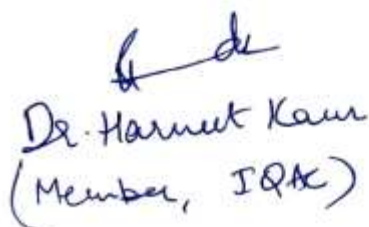 Dr. Harneet Kaur
(Member, IQAC)